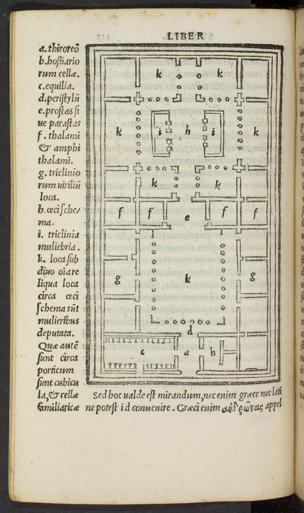 LIBER
a. thiroreō
b. hostiario
rum cellæ.
c. equilia.
d. peristylii
e. prostas si
ue parastas
f. thalami
& amphi
thalami.
g. triclinio
rum uiriliū
loca.
h. œci sche-
ma.
i. triclinia
muliebria.
k. loca sub
diuo oīa re
liqua loca
circa œci
schema sūt
mulieribus
deputata.
Quæ autē
sunt circa
porticum
sunt cubicu
la, & cellæ
familiaricæ
k k
k i h i k
k k
f f e f f
g k g
d
c a b
Sed hoc ualde est mirandum, nec enim græce nec lati
ne potest id conuenire. Græci enim ἀνδρῶνας appel